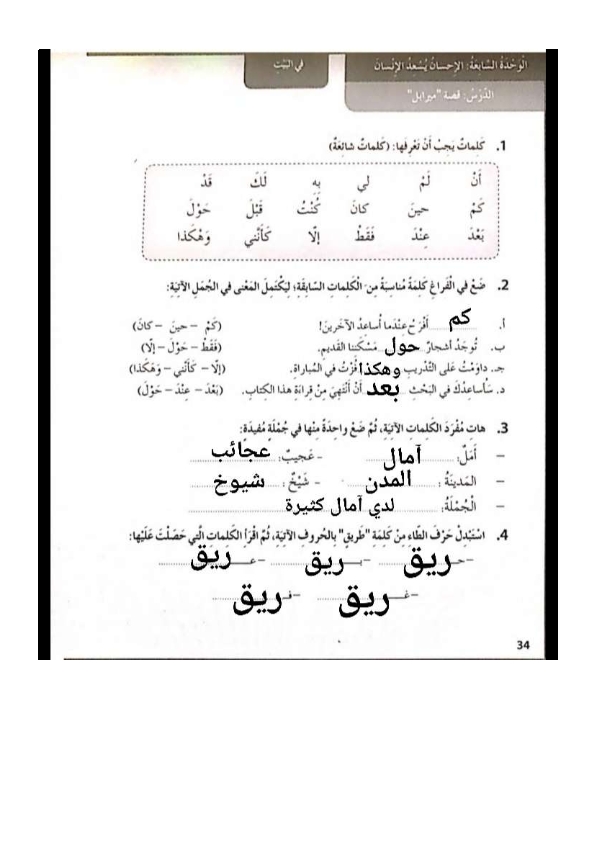 الْوَحْدَةُ السَّابِعَةُ: الإِحسانُ يُسْعِدُ الإِنْسانَ
في البَيْتِ
الدَّرْسُ: قصة "ميرابل"
1. كَلِماتٌ يَجِبُ أَنْ نَعْرِفَها: (كَلِماتٌ شائِعَةٌ)
أَنْ لَمْ لي بِهِ لَكَ قَدْ
كَمْ حينَ كانَ كُنْتُ قَبْلَ حَوْلَ
بَعْدَ عِنْدَ فَقَطْ إلّا كَأَنَّني وَهٰكَذا
2. ضَعْ في الْفَراغِ كَلِمَةً مُناسَبَةً مِنَ الْكَلِماتِ السّابِقَةِ؛ لِيَكْتَمِلَ الْمَعْنى في الجُمَلِ الآتِيَةِ:
أ. كم أَفْرَحُ عِنْدَما أُساعِدُ الآخَرينَ! (كَمْ – حينَ – كانَ)
ب. تُوجَدُ أشجارٌ حول مَسْكَنِنا القَديمِ. (فَقَطْ – حَوْلَ – إلّا)
جـ. داوَمْتُ عَلى التَّدْريبِ وهكذا فُزْتُ في المُباراةِ. (إلّا – كَأَنَّني – وَهٰكَذا)
د. سَأُساعِدُكَ في البَحْثِ بعد أَنْ أَنْتَهِيَ مِنْ قِراءَةِ هذا الكتابِ. (بَعْدَ – عِنْدَ – حَوْلَ)
3. هاتِ مُفْرَدَ الكَلِماتِ الآتِيَةِ، ثُمَّ ضَعْ واحِدَةً مِنْها في جُمْلَةٍ مُفيدَةٍ:
– أَمَلٌ: آمال – عَجيبٌ: عجائب
– المَدينَةُ: المدن – شَيْخٌ: شيوخ
– الْجُمْلَةُ: لدي آمال كثيرة
4. اسْتَبْدِلْ حَرْفَ الطّاءِ مِنْ كَلِمَةِ "طَريق" بِالحُروفِ الآتِيَةِ، ثُمَّ اقْرَأِ الكَلِماتِ الَّتي حَصَلْتَ عَلَيْها:
–حـ ريق –بـ ريق –عـ ريق
–غـ ريق –فـ ريق
34